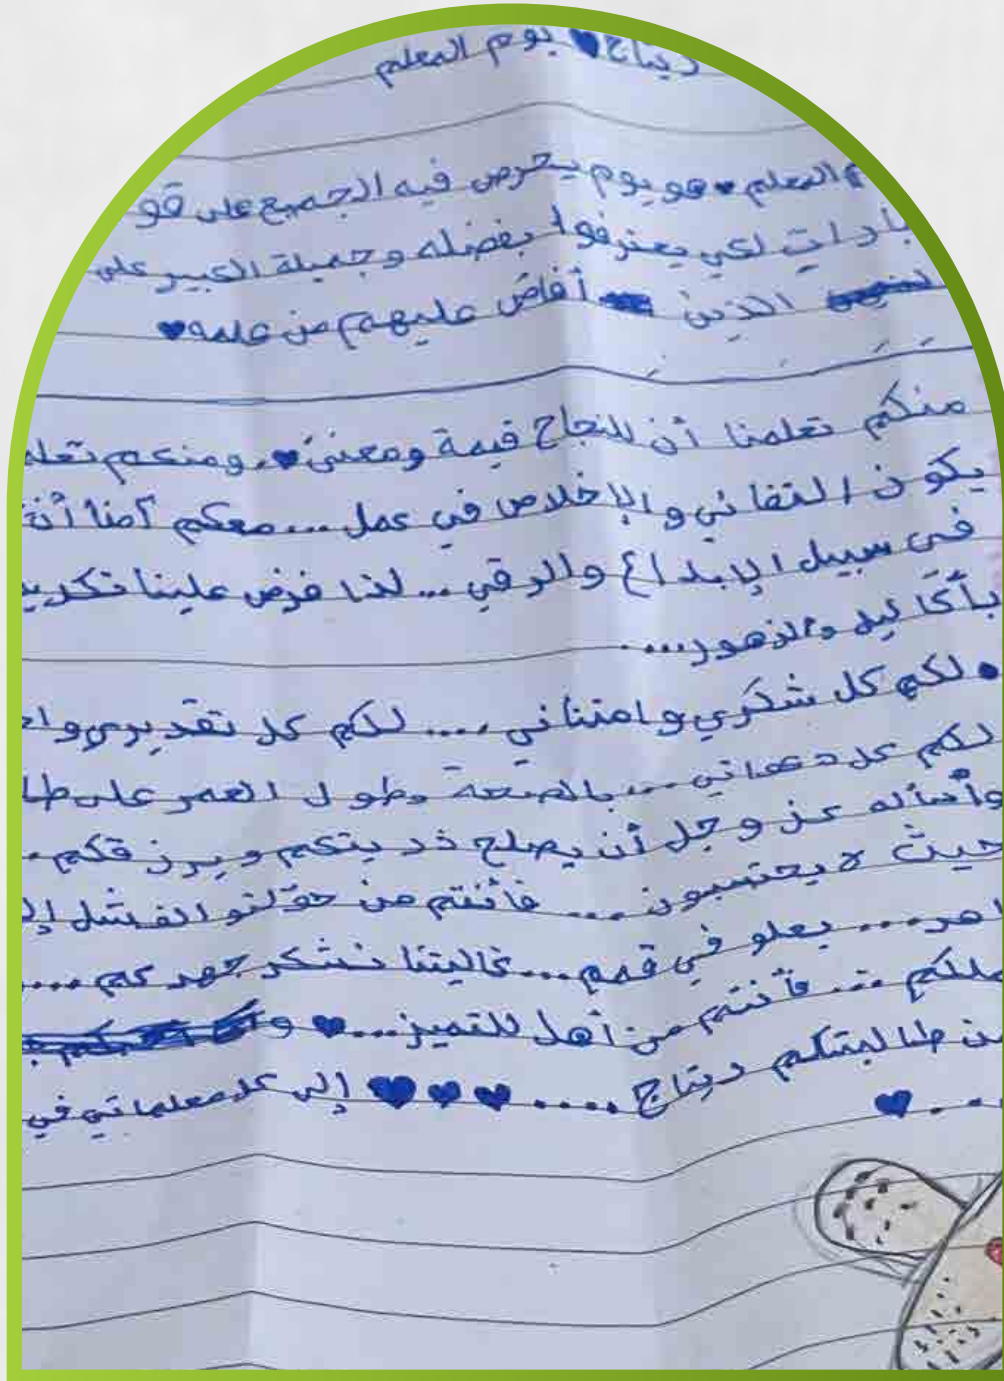 ريتاج♥ يوم المعلم
م المعلم ♥ هو يوم يحرص فيه الجميع على قو
لكي يعترفوا بفضله وجميلة الكبير على
الذين أفاض عليهم من علمه♥
منكم تعلمنا أن للنجاح قيمة ومعنى♥. ومنكم تعلم
يكون التفاني والإخلاص في عمل... معكم آمنا أن
في سبيل الإبداع والرقي... لذا فرض علينا تكريم
بأكاليل والزهور....
• لكم كل شكري وامتناني .... لكم كل تقديري واح
لكم كل دعماتي ... بالصحة وطول العمر على طا
وأسأله عز وجل أن يصلح ذريتكم ويرزقكم .
حيث لا يحتسبون .... فأنتم من حوّلتو الفشل إل
اهر.... يعلو في قمم... غاليتنا نشكر جهدكم ....
ملكم ... فأنتم من أهل للتميز...♥ و
من طالبتكم ريتاج .... ♥♥♥ إلى كل معلماتي في
...♥